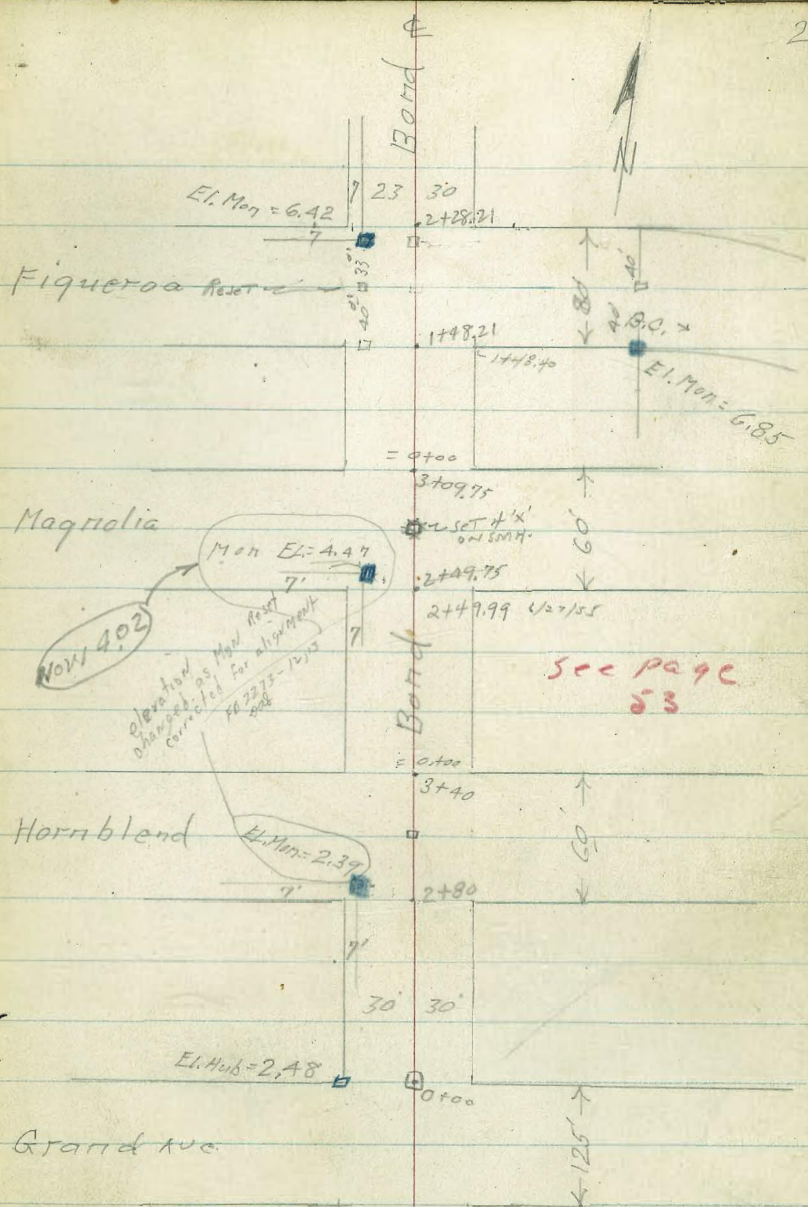 ℄
2
Bond
El. Mon = 6.42
7 23 30
2+28.21
7
Figueroa Reset
33'
40'
80'
40'
40' B.C.
1+48.21
1+48.40
El. Mon = 6.85
= 0+00
3+09.75
Magnolia
SET 4 'X'
ON SMH.
60'
Mon EL = 4.47
7'
2+49.75
2+49.99 6/27/55
7
NOW 4.02
elevation
changed, as Mon Reset
corrected for alignment
FB 2273-12,13
Bond
See page
53
= 0+00
3+40
Hornblend
El. Mon = 2.39
60'
7'
2+80
7'
30' 30'
El. Hub = 2.48
0+00
Grand Ave.
125'
N